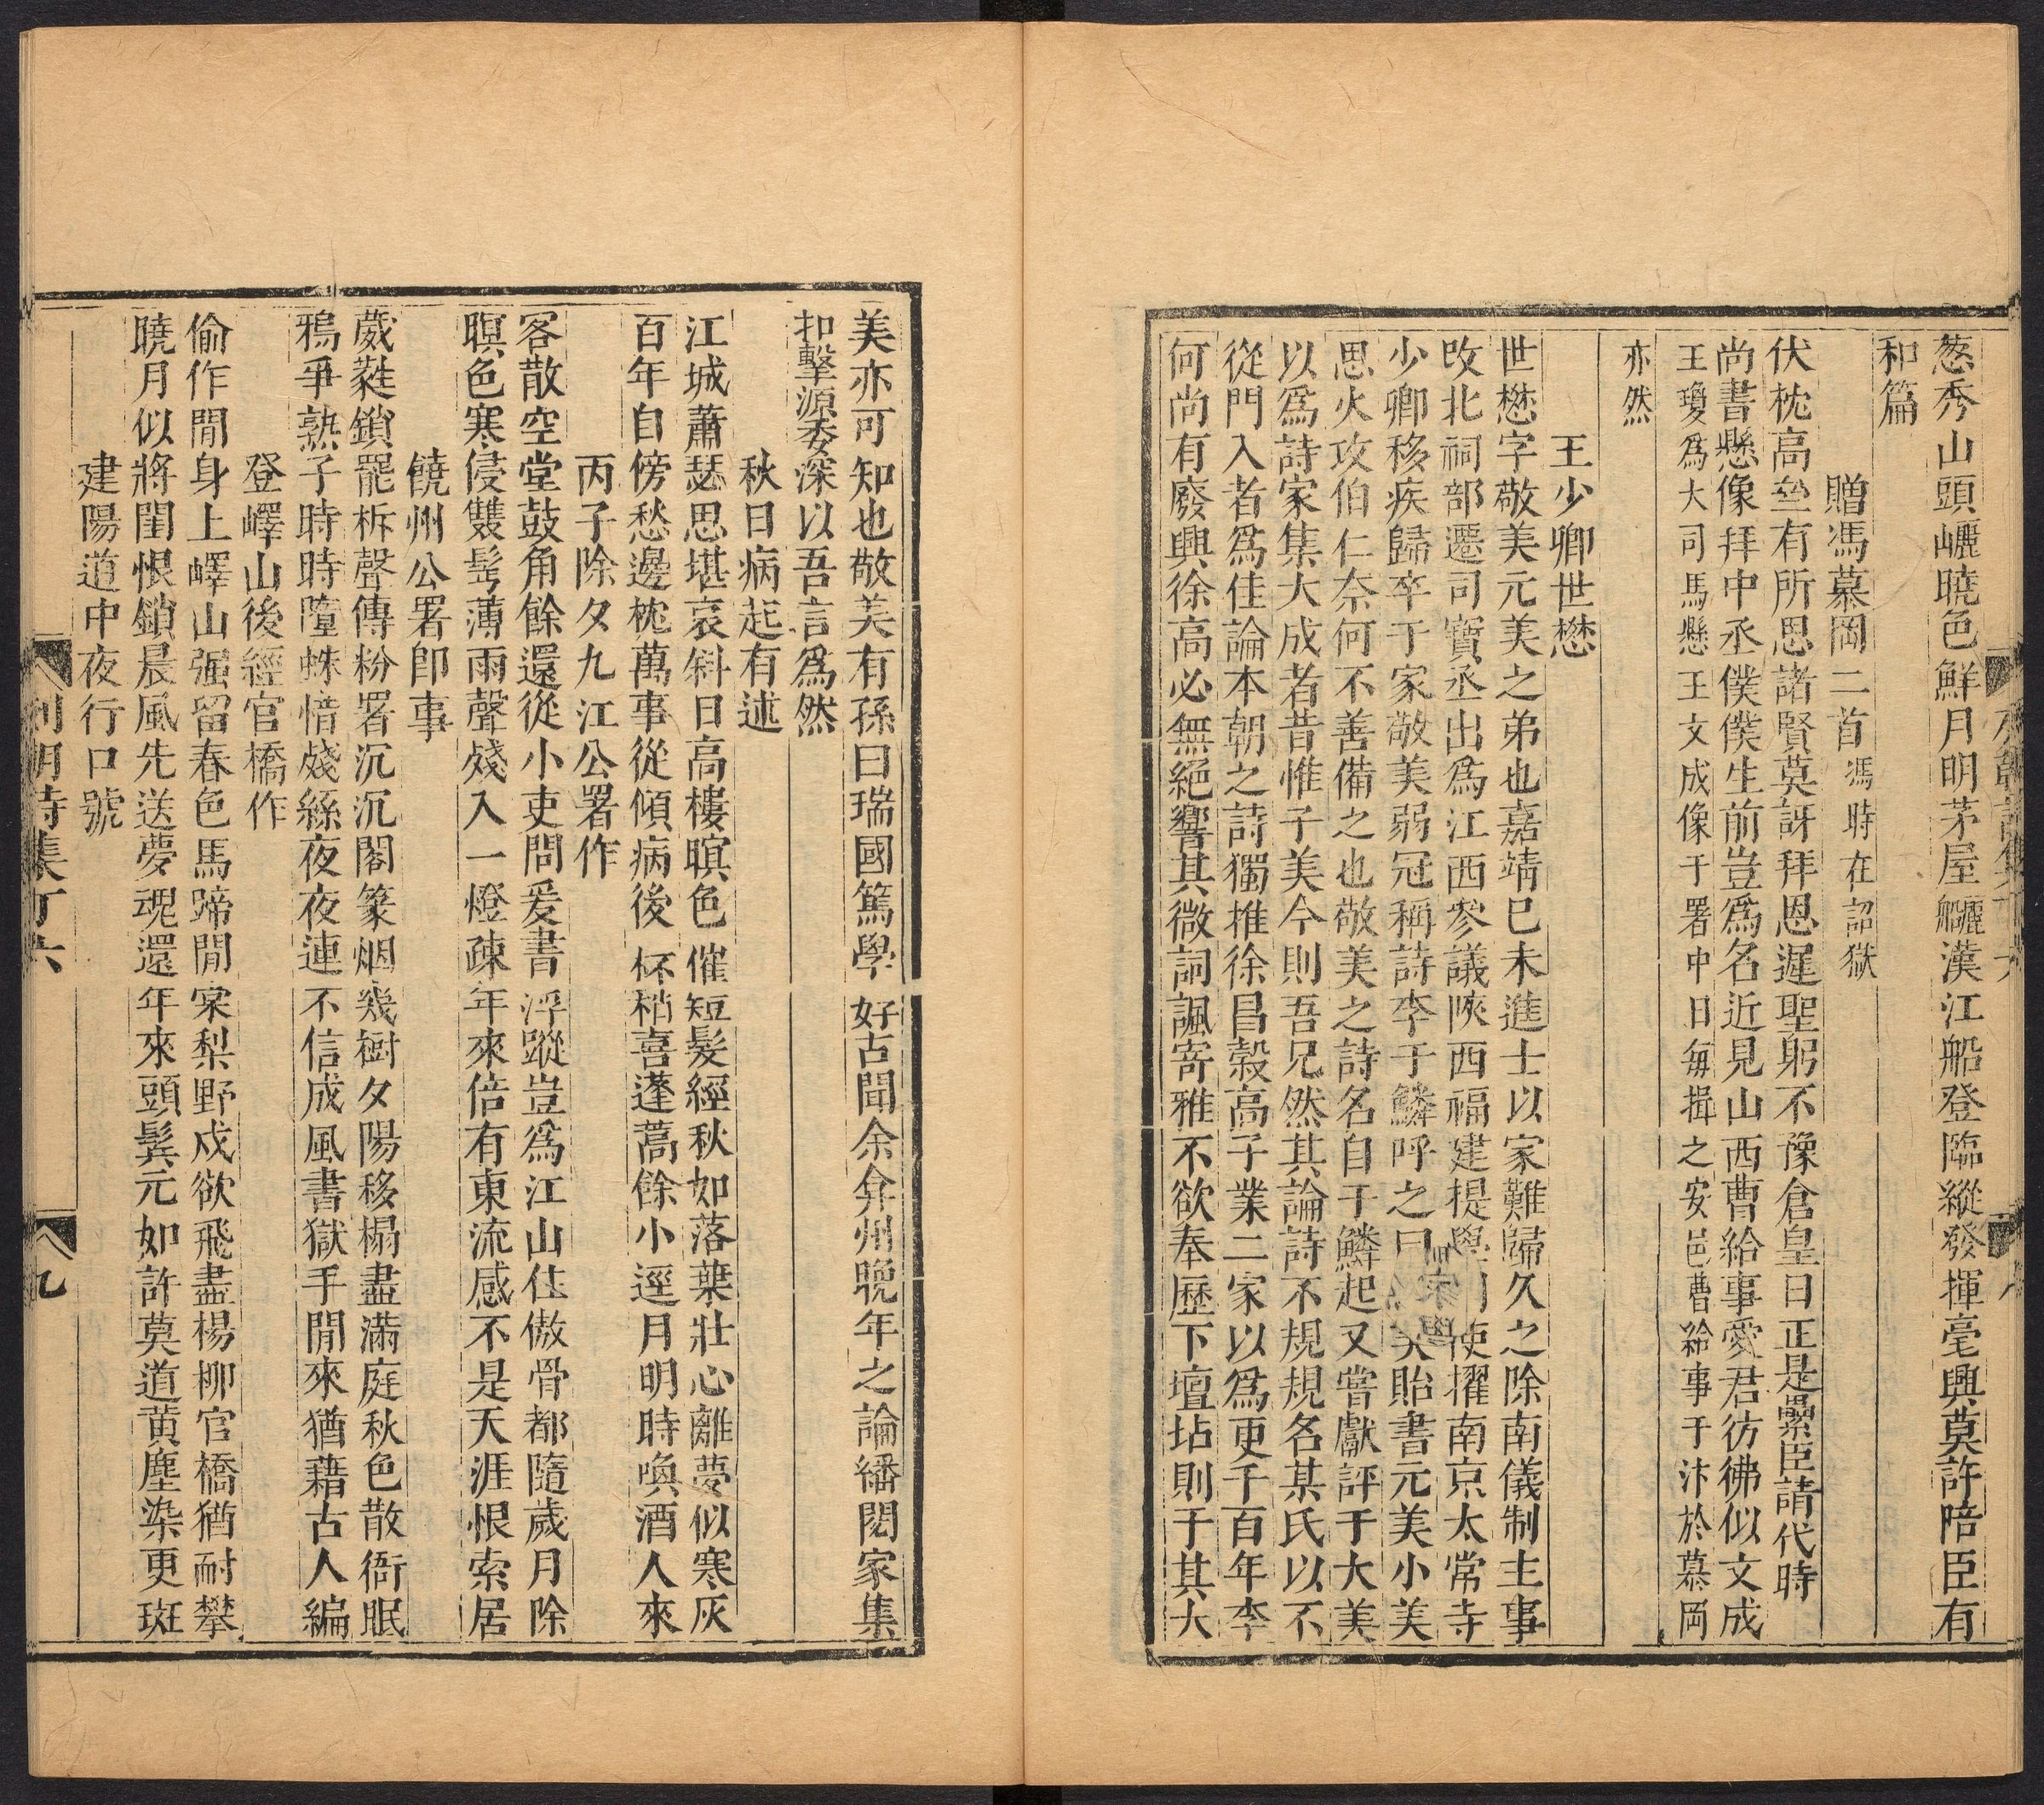 葱秀山頭巁曉色鮮月明茅屋𦫈漢江船登臨縱發揮毫興莫許陪臣有
和篇
贈馮慕岡二首馮時在詔獄
伏枕高堂有所思諸賢莫訝拜恩遲聖躬不豫倉皇日正是纍臣請代時
尚書懸像拜中丞僕僕生前豈爲名近見山西曹給事愛君彷彿似文成
王瓊爲大司馬懸王文成像于署中日每揖之安邑曹給事于汴於慕岡
亦然
王少卿世懋
世懋字敬美元美之弟也嘉靖已未進士以家難歸久之除南儀制主事
攺北祠部遷司寳丞出爲江西參議陝西福建提學使擢南京太常寺
少卿移疾歸卒于家敬美弱冠稱詩李于鱗呼之曰美貽書元美小美
思火攻伯仁奈何不善備之也敬美之詩名自于鱗起又嘗獻評于大美
以爲詩家集大成者昔惟子美今則吾兄然其論詩不規規名某氏以不
從門入者爲佳論本朝之詩獨推徐昌穀高子業二家以爲更千百年李
何尚有廢興徐高必無絕響其微詞諷寄雅不欲奉歷下壇坫則于其大
八
美亦可知也敬美有孫曰瑞國篤學好古聞余弇州晚年之論繙閱家集
扣擊源委深以吾言爲然
秋日病起有述
江城蕭瑟思堪哀斜日高樓暝色催短髮經秋如落葉壯心離夢似寒灰
百年自傍愁邊枕萬事從傾病後杯稍喜蓬蒿餘小逕月明時喚酒人來
丙子除夕九江公署作
客散空堂鼓角餘還從小吏問爰書浮蹤豈爲江山住傲骨都隨歲月除
暝色寒侵雙髩薄雨聲殘入一燈疎年來倍有東流感不是天涯恨索居
饒州公署卽事
葳蕤鎖罷柝聲傳粉署沉沉閣篆烟幾樹夕陽移榻盡滿庭秋色散衙眠
鴉爭熟子時時墮蛛惜殘絲夜夜連不信成風書獄手閒來猶藉古人編
登嶧山後經官橋作
偷作閒身上嶧山强留春色馬蹄閒棠梨野戍欲飛盡楊柳官橋猶耐攀
曉月似將閨恨鎖晨風先送夢魂還年來頭鬢元如許莫道黄塵染更斑
建陽道中夜行口號
列朝詩集丁六
九